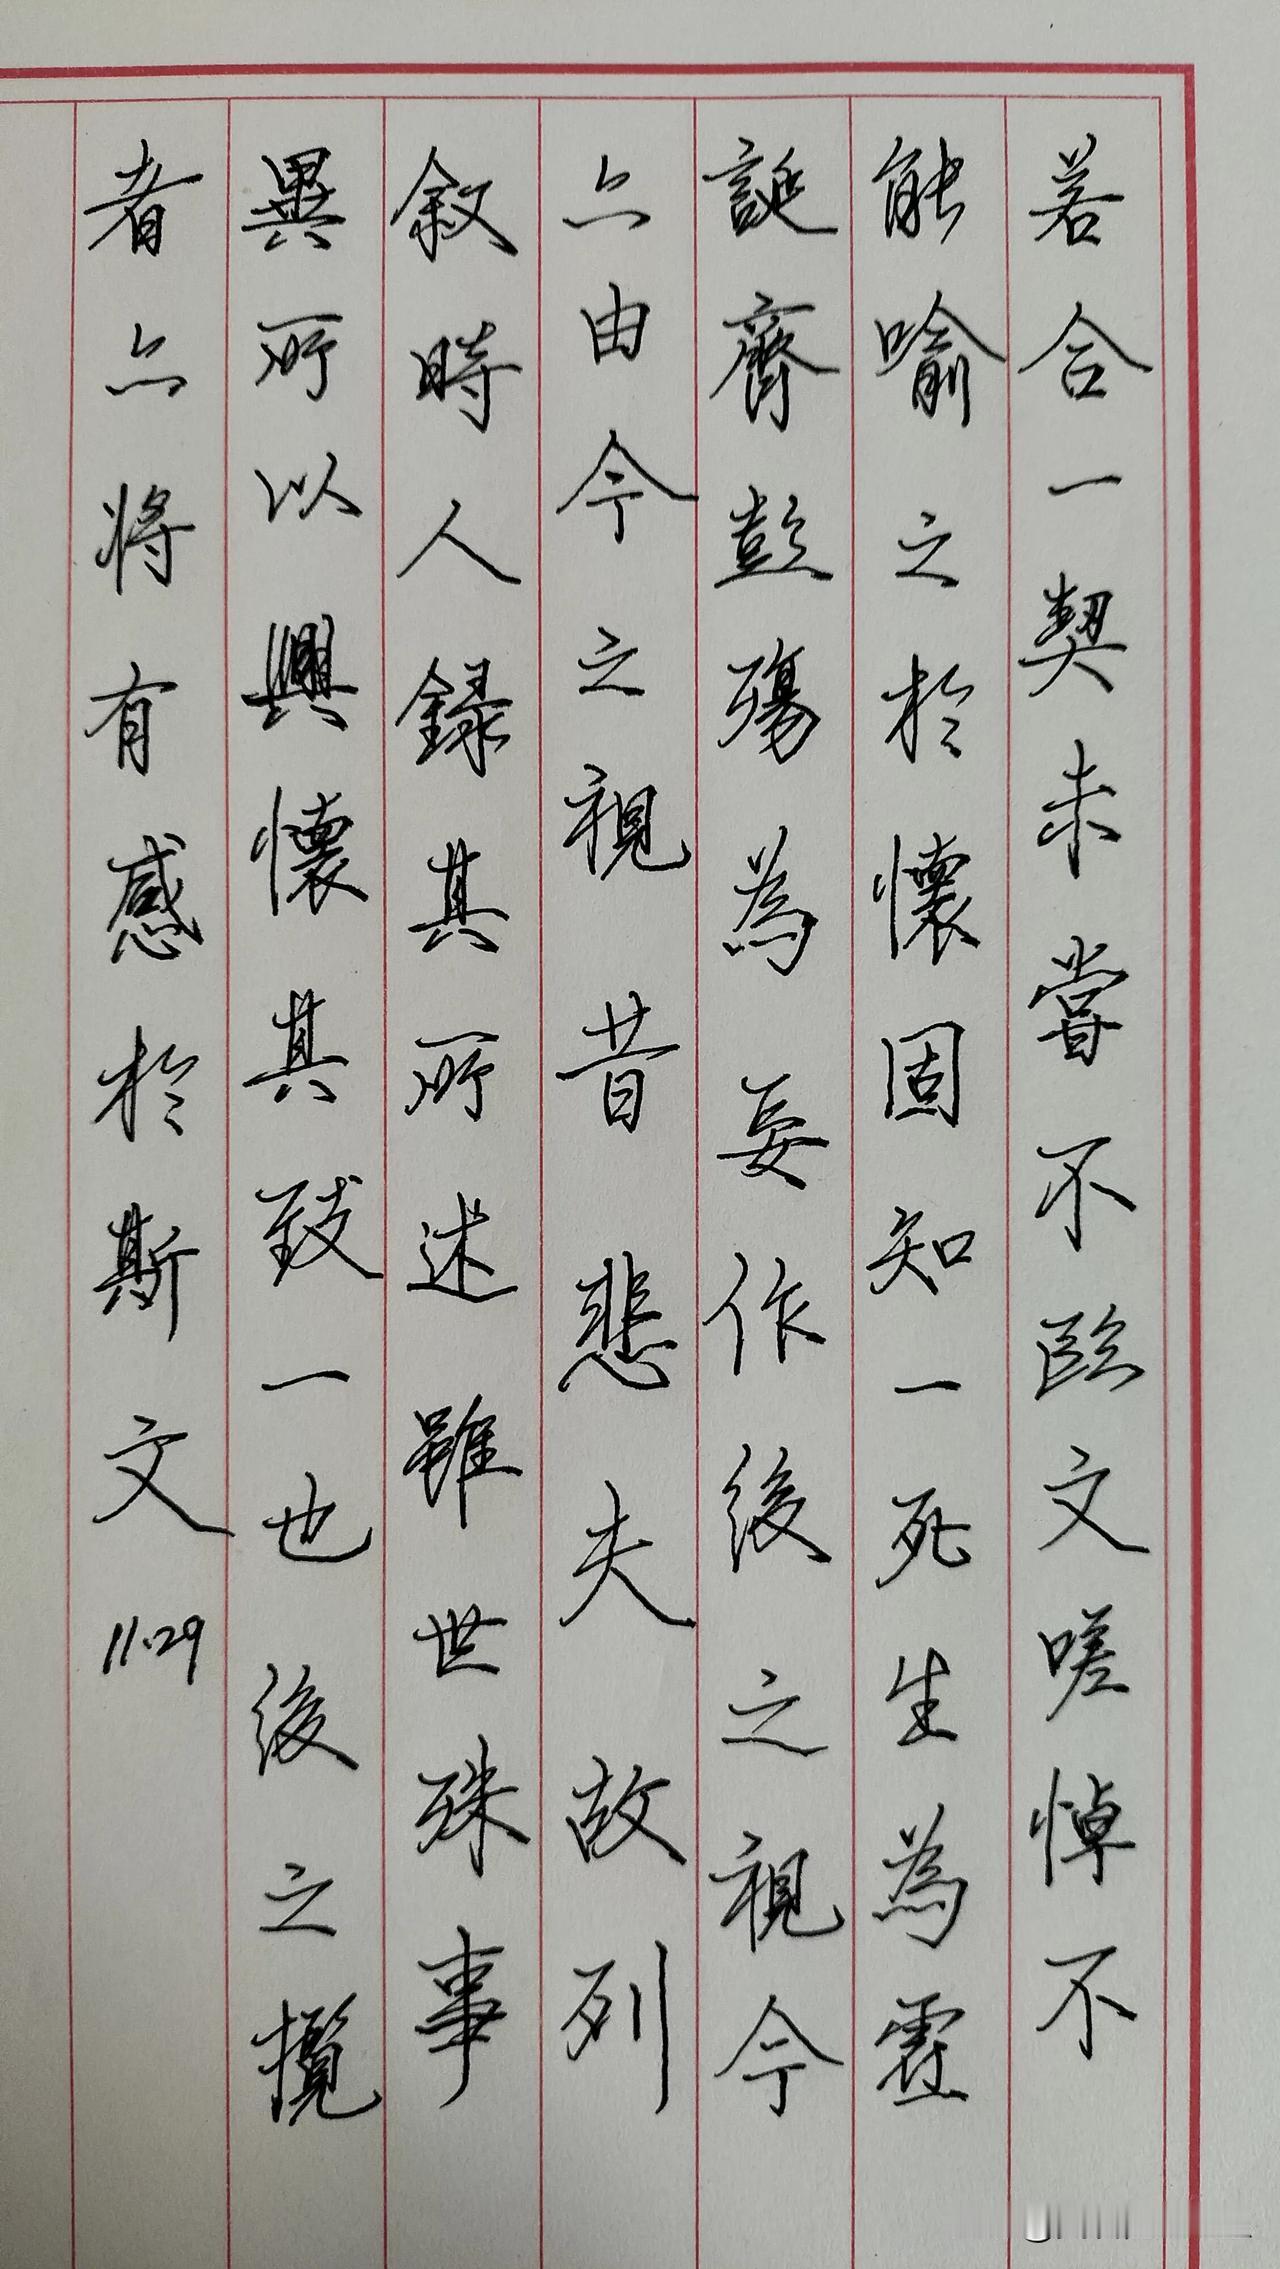 若合一契未嘗不臨文嗟悼不
能喻之於懷固知一死生為虛
誕齊彭殤為妄作後之視今
亦由今之視昔悲夫故列
叙時人録其所述雖世殊事
異所以興懷其致一也後之攬
者亦將有感於斯文
11.29